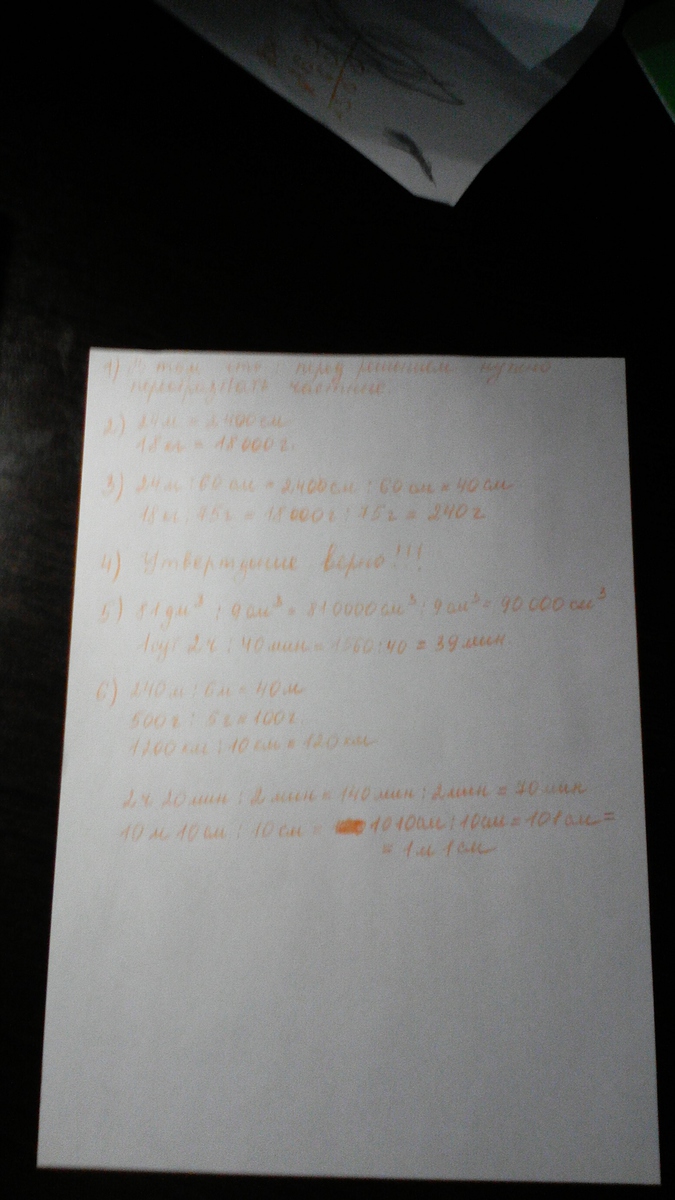 1) В том что: перед решением нужно
частные.
2) 24м = 2400см
18кг = 18000г.
3) 24м : 60см = 2400см : 60см = 40см
18кг : 75г = 18000г : 75г = 240г
4) верно!!!
5) 81дм³ : 9см³ = 810000см³ : 9см³ = 90000см³
1сут 2ч : 40мин = 1560:40 = 39мин.
6) 240м : 6м = 40м
500г : 5г = 100г
1200км : 10км = 120км
2ч 20мин : 2мин = 140мин : 2мин = 70мин
10м 10см : 10см = 1010см : 10см = 101см =
= 1м 1см